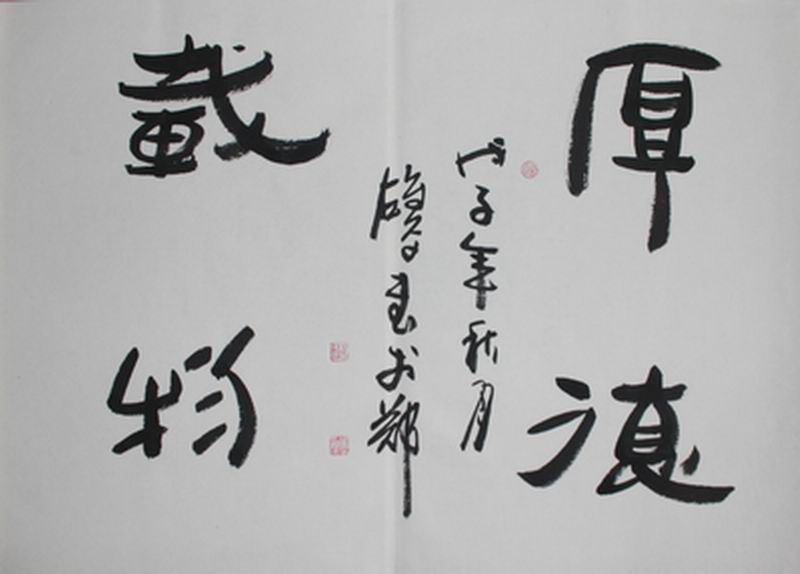 厚德
載物
戊子年秋月
書於鄭